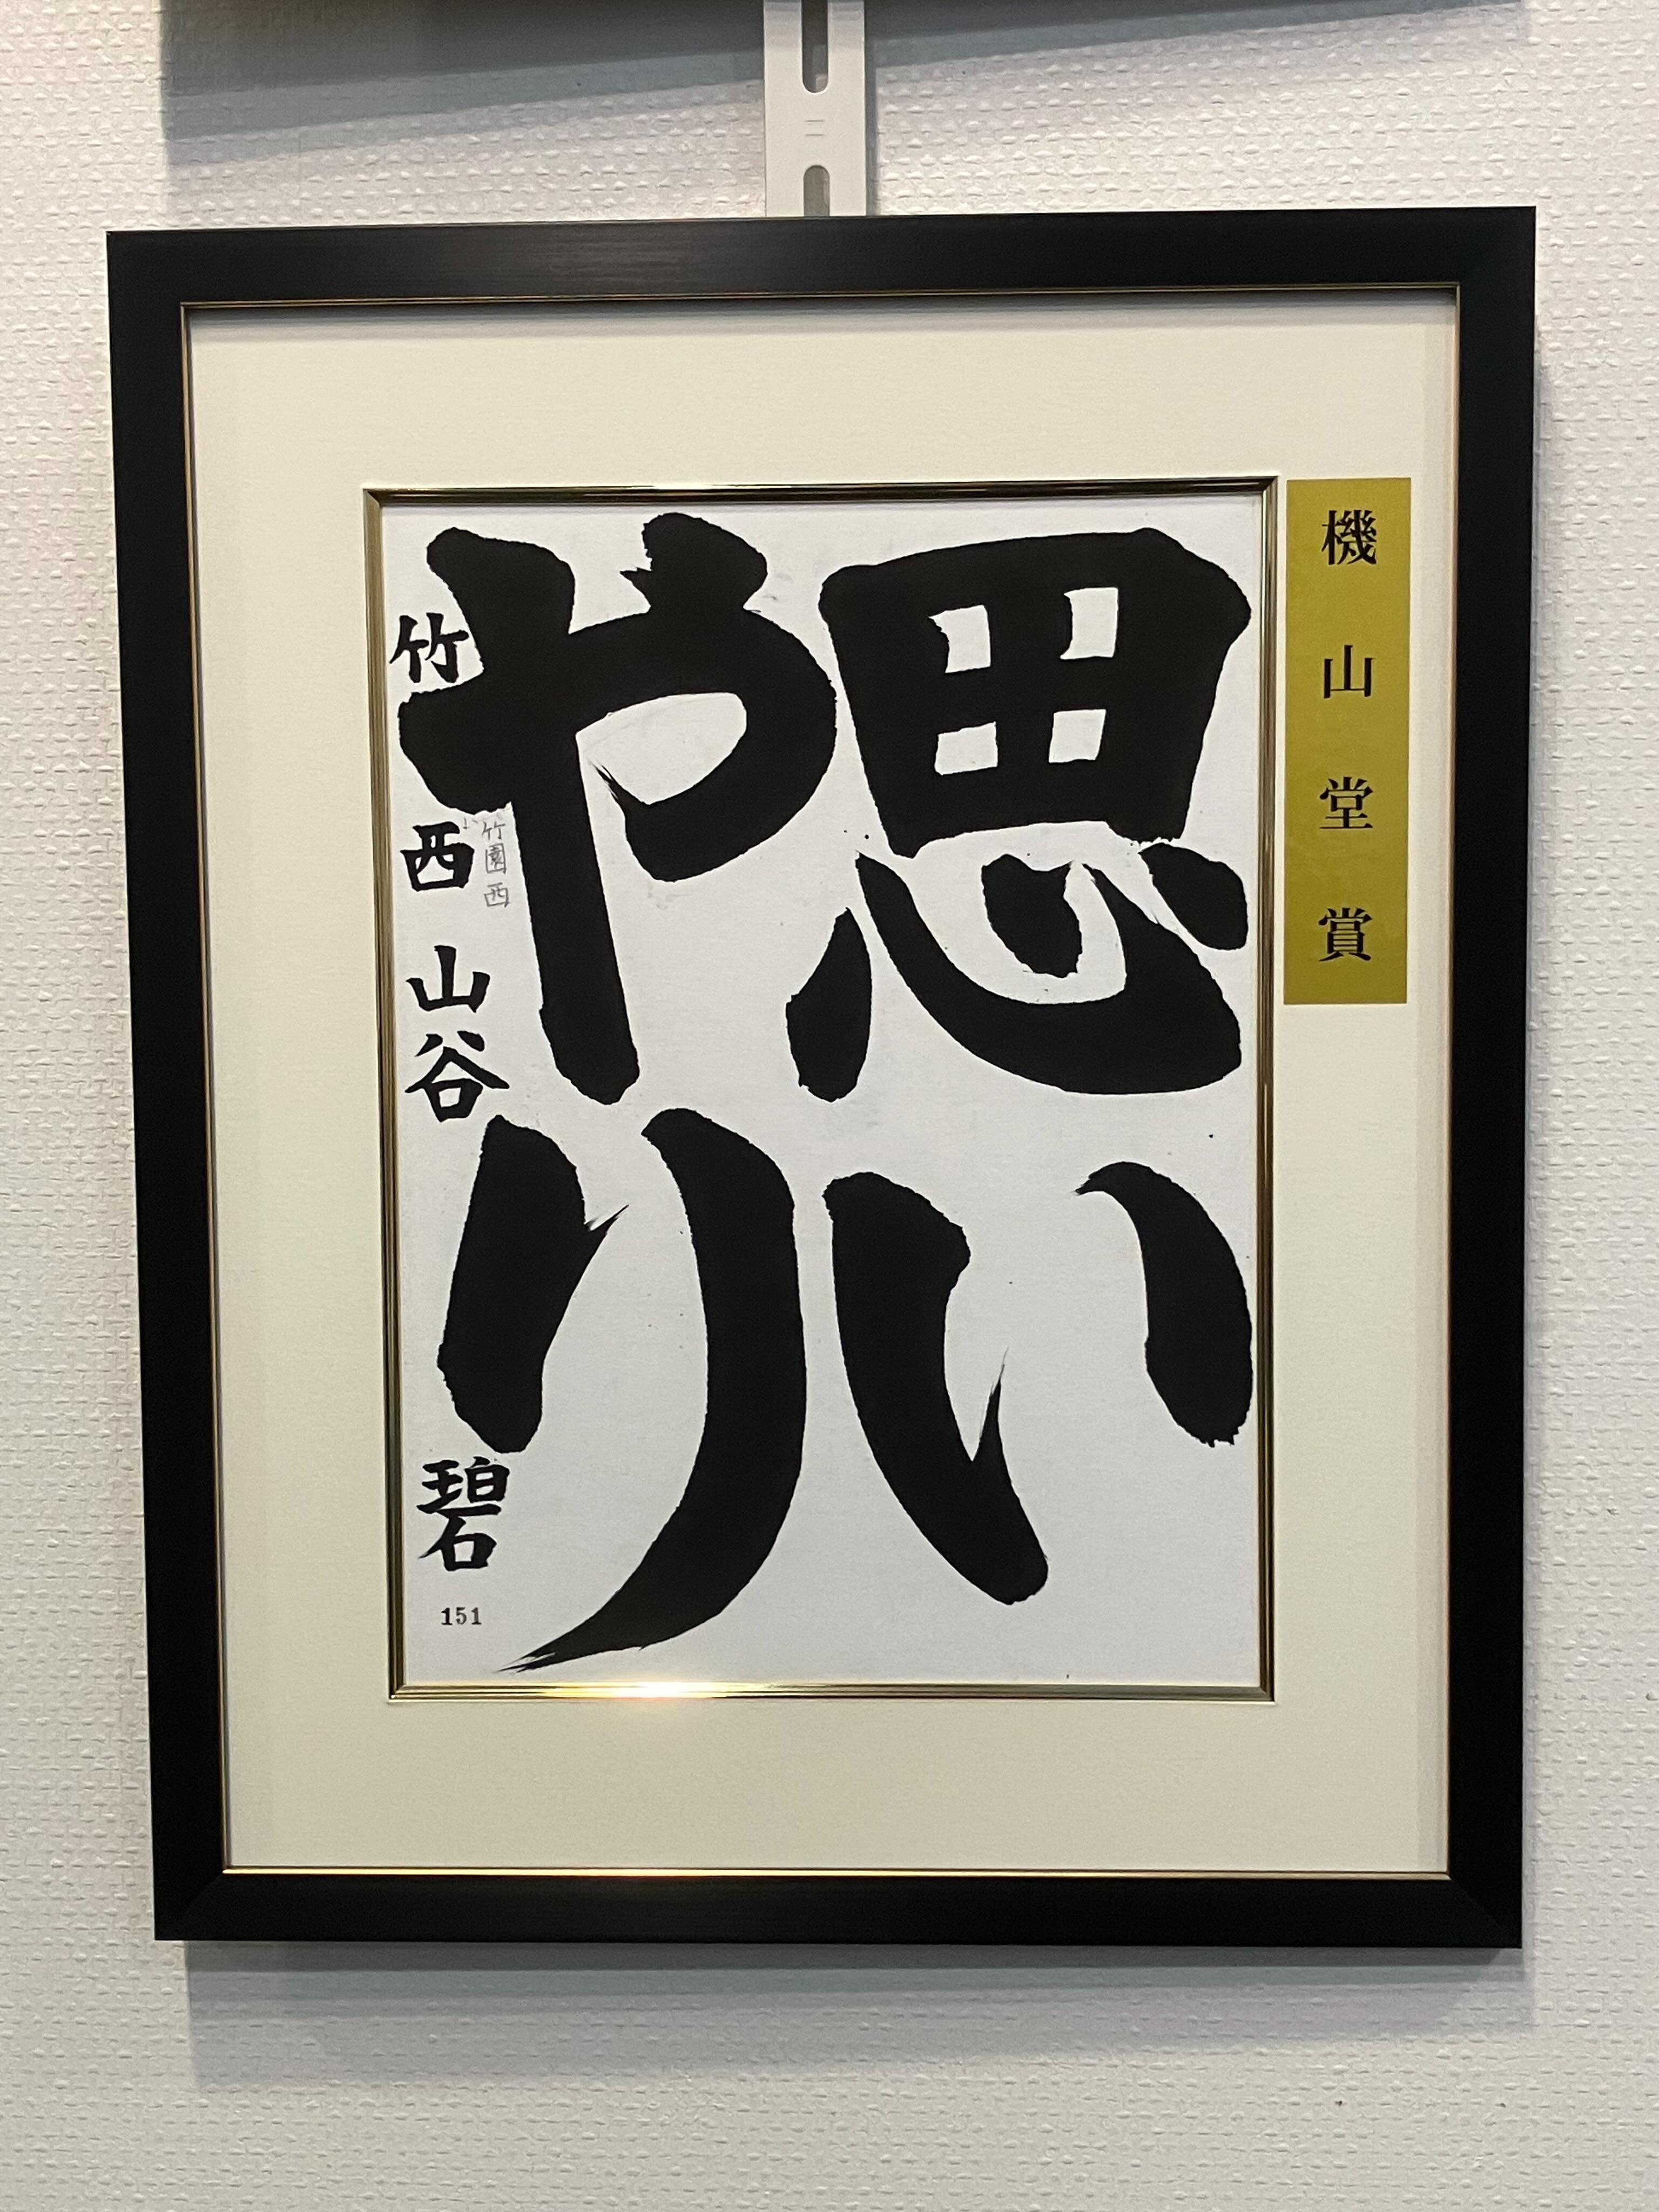 機山堂賞
思い
やり
竹園西
竹西 山谷 碧
151